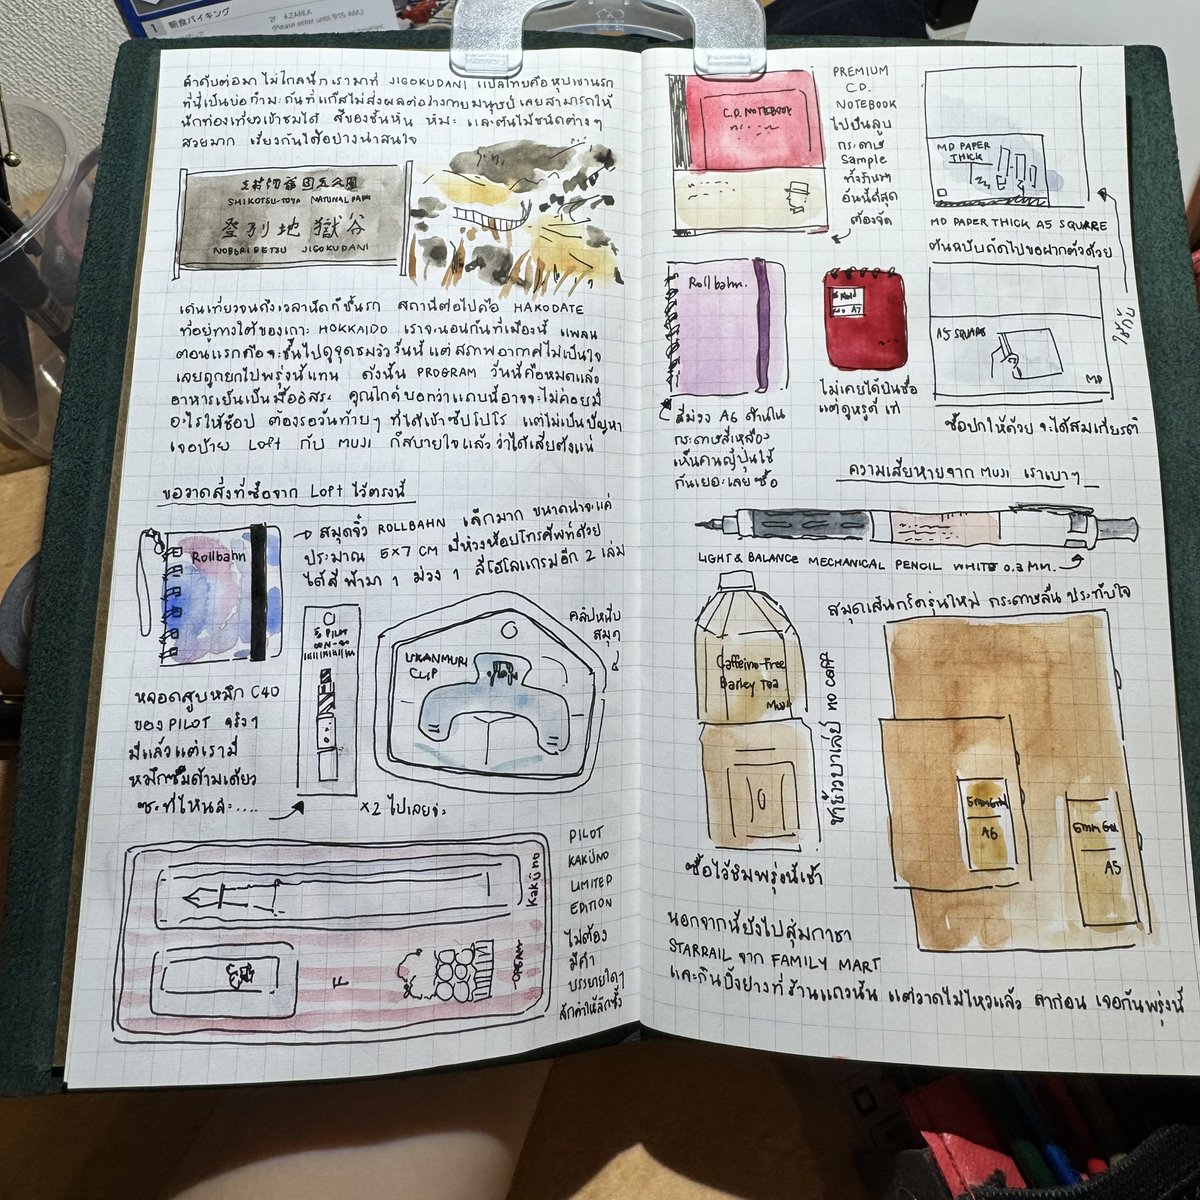 1 朝食バイキング
AZAREA
ลำดับต่อมา ไม่ไกลนัก เรามาที่ JIGOKUDANI แปลไทยคือ หุบเขานรก
ที่นี่เป็นบ่อกำมะถันที่แก๊สไม่ส่งผลต่อร่างกายมนุษย์ เลยสามารถให้
นักท่องเที่ยวเข้าชมได้ สีของชั้นหิน หิมะ และต้นไม้ชนิดต่างๆ
สวยมาก เรียงกันได้อย่างน่าสนใจ
SHIKOTSU-TOYA NATIONAL PARK
登別地獄谷
NOBORIBETSU JIGOKUDANI
เดินเที่ยวจนถึงเวลานัดก็ขึ้นรถ สถานีต่อไปคือ HAKODATE
ที่อยู่ทางใต้ของเกาะ HOKKAIDO เราจะนอนกันที่เมืองนี้ แพลน
ตอนแรกคือจะขึ้นไปดูจุดชมวิววันนี้ แต่สภาพอากาศไม่เป็นใจ
เลยถูกยกไปพรุ่งนี้แทน ดังนั้น PROGRAM วันนี้คือหมดแล้ว
อาหารเย็นเป็นมื้ออิสระ คุณไกด์บอกว่าแถบนี้อาจจะไม่ค่อยมี
อะไรให้ช็อป ต้องรอวันท้ายๆ ที่ได้เข้าซัปโปโร แต่ไม่เป็นปัญหา
เจอป้าย Loft กับ MUJI ก็สบายใจแล้วว่าได้เสียตังแน่
ขอวาดสิ่งที่ซื้อจาก Loft ไว้ตรงนี้
Rollbahn
→ สมุดจิ๋ว ROLLBAHN เล็กมาก ขนาดน่าจะแค่
ประมาณ 5×7 CM มีห่วงห้อยโทรศัพท์ด้วย
ได้สีฟ้ามา 1 ม่วง 1 สีโฮโลแกรมอีก 2 เล่ม
หลอดสูบหมึก C40
ของ PILOT จริงๆ
มีแล้วแต่เรามี
หมึกซึมด้ามเดียว
ซะที่ไหนล่ะ....
PILOT
CON-40
UKANMURI
CLIP
คลิปหนีบ
สมุด
×2 ไปเลยจ่ะ
Kaküno
F
CREAM
PILOT
KAKÜNO
LIMITED
EDITION
ไม่ต้อง
มีคำ
บรรยายใดๆ
ลึกค่าให้ลึกซึ้ง
C.D. NOTEBOOK
PREMIUM
C.D.
NOTEBOOK
ไปยืนลูบ
กระดาษ
Sample
ทั้งร้านฯ
อันนี้ดีสุด
ต้องจัด
MD PAPER
THICK
MD PAPER THICK A5 SQUARE
ต้นฉบับถัดไปขอฝากตัวด้วย
Rollbahn.
สีม่วง A6 ด้านใน
กระดาษสีเหลือง
เห็นคนญี่ปุ่นใช้
กันเยอะเลยซื้อ
ไม่เคยได้ยินชื่อ
แต่ดูหรูดี เท่
A5 SQUARE
MD
ซื้อปกให้ด้วย จะได้สมเกียรติ
ความเสียหายจาก MUJI เราเบาๆ
LIGHT & BALANCE MECHANICAL PENCIL WHITE 0.3 MM.
Caffeine-Free
Barley Tea
MUJI
ชาข้าวบาเลย์ no caff
ซื้อไว้ชิมพรุ่งนี้เช้า
สมุดเส้นกริดรุ่นใหม่ กระดาษลื่น ประทับใจ
5mm Grid
A6
5mm Grid
A5
นอกจากนี้ยังไปสุ่มกาชา
STARRAIL จาก FAMILY MART
และกินปิ้งย่างที่ร้านแถวนั้น แต่วาดไม่ไหวแล้ว ลาก่อน เจอกันพรุ่งนี้